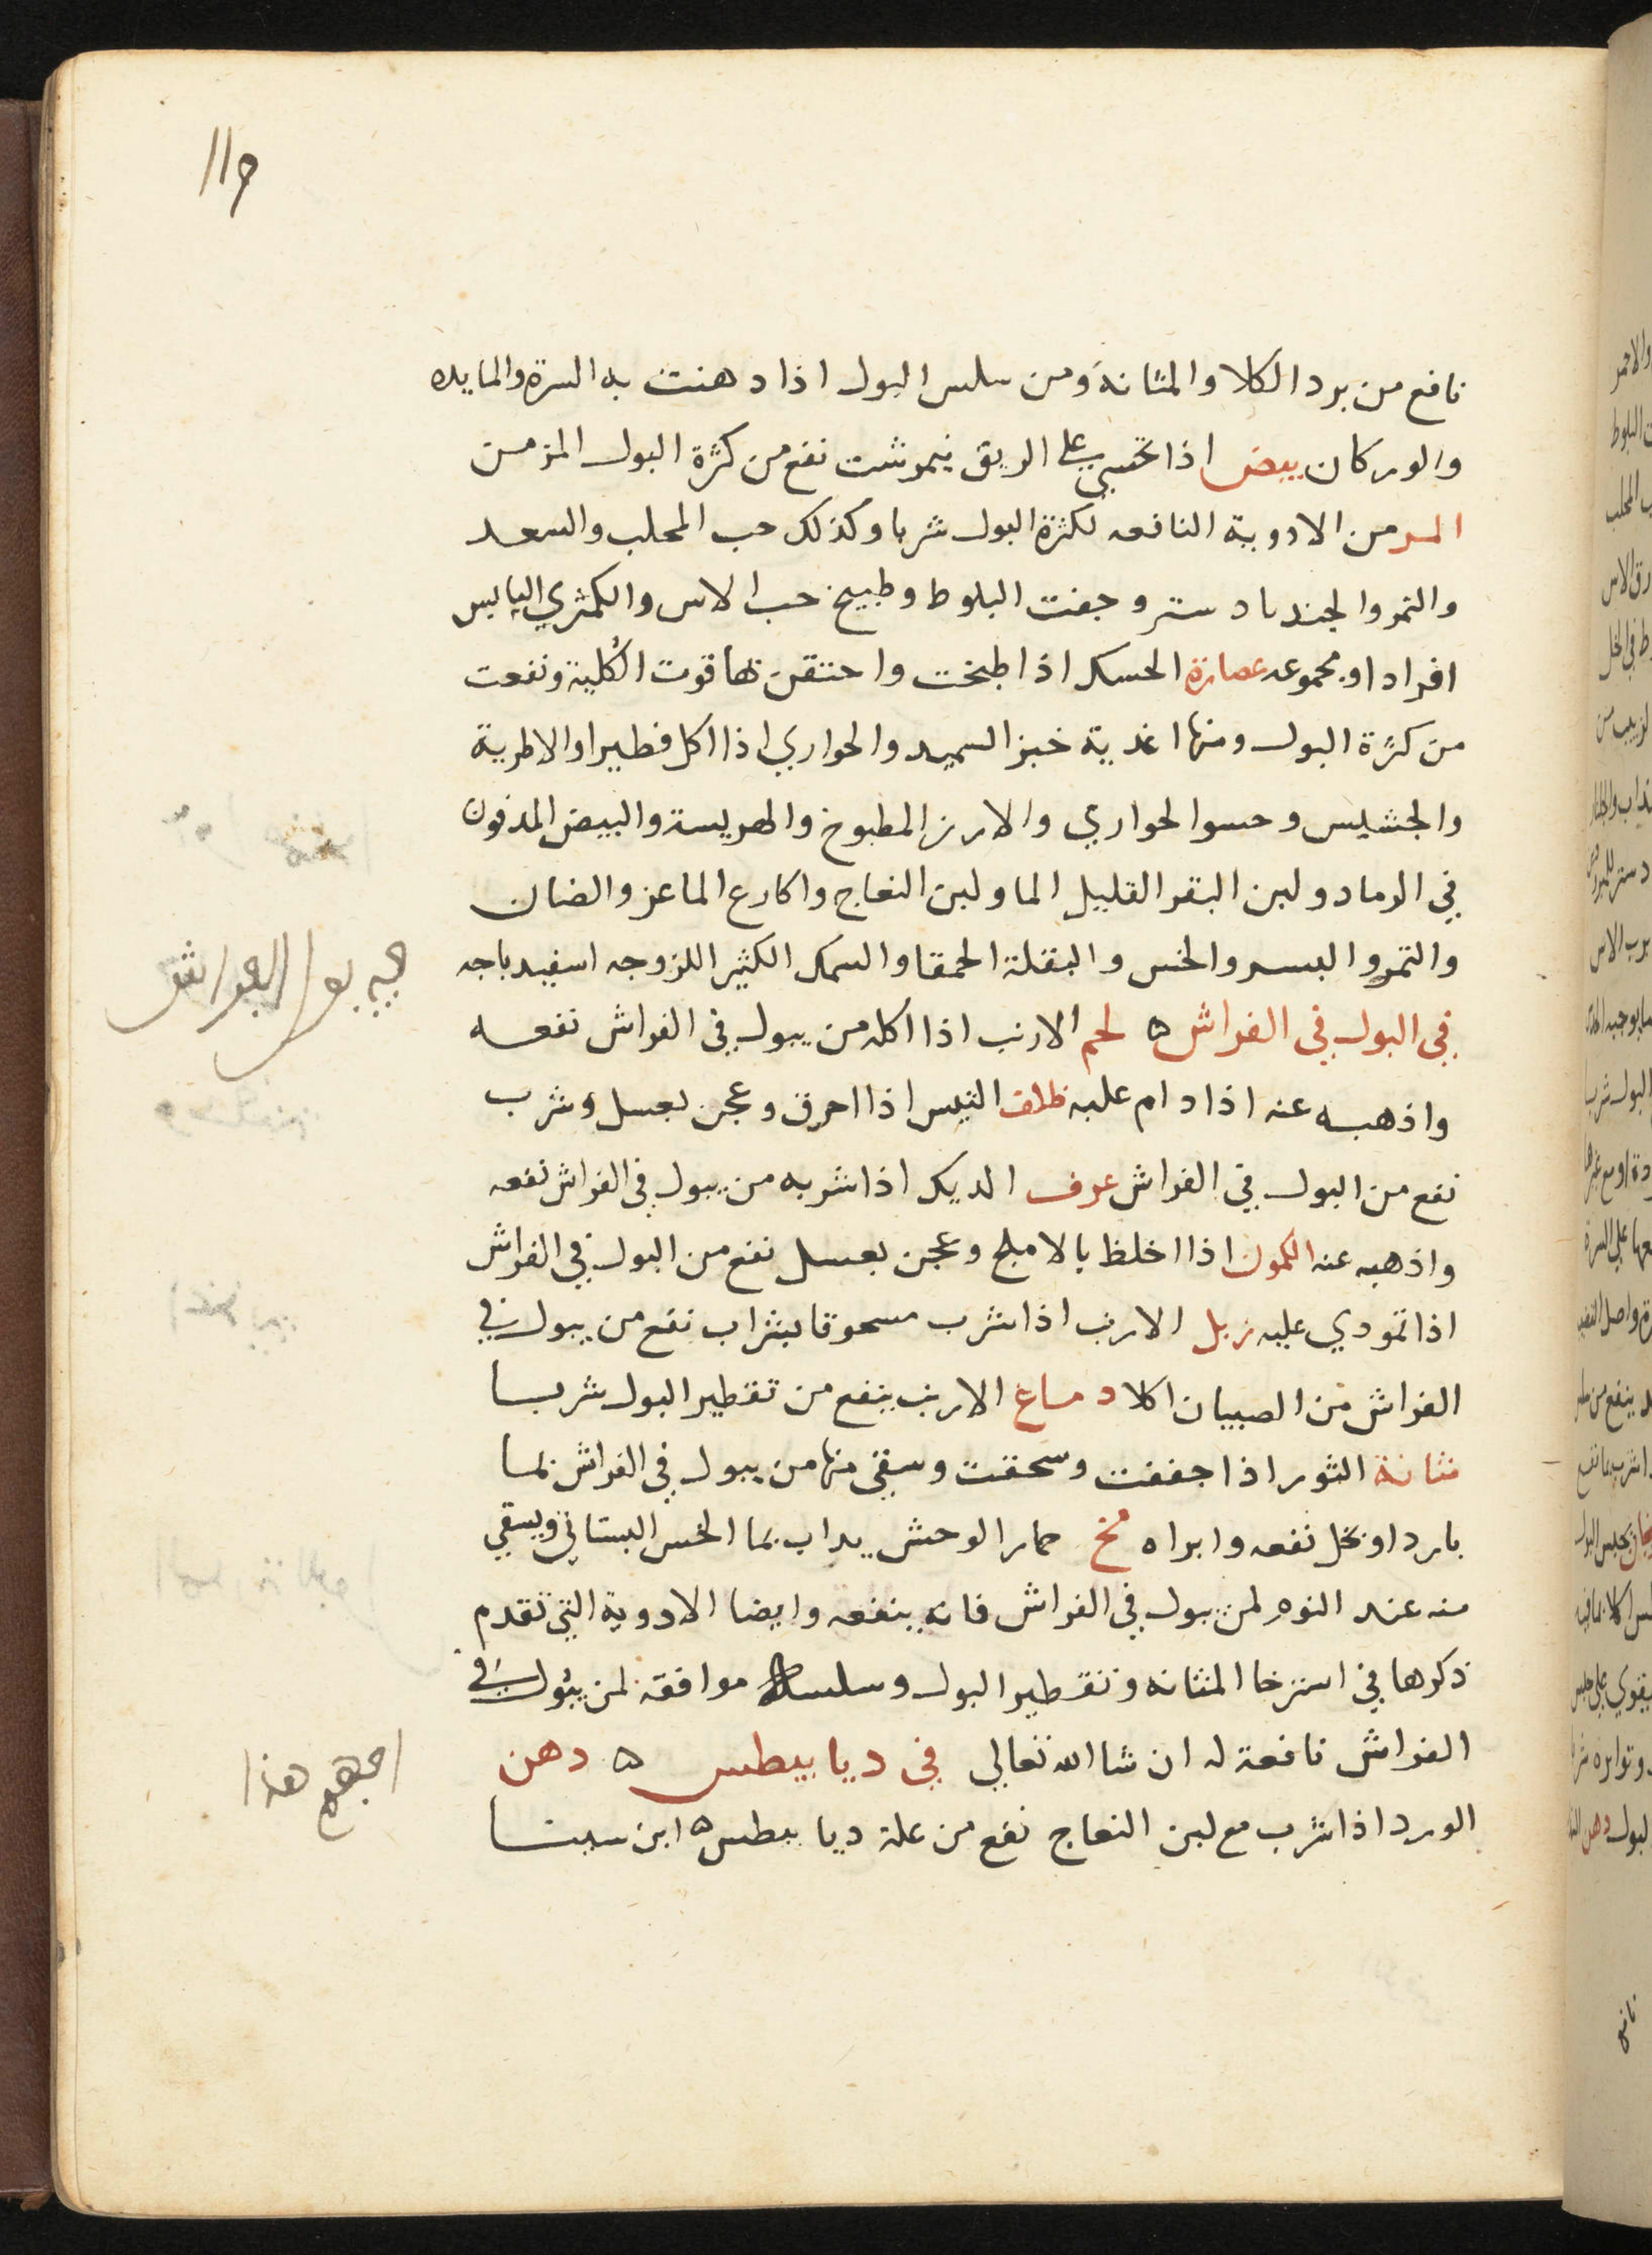 نافع من برد الكلا والمثانة ومن سلس البول اذا دهنت به السرة والمايده
والوركان بيض اذا تحسى على الريق نيمرشت نفع من كثرة البول المزمن
المر من الادوية النافعه لكثرة البول شربا وكذلك حب المحلب والسعد
والتمر والجندبادستر وجفت البلوط وطبيخ حب الاس والكمثري اليابس
افرادا او مجموعه عصارة الحسك اذا طبخت واحتقن بها قوت الكلية ونفعت
من كثرة البول ومنها اغدية خبز السميد والحواري اذا اكل فطيرا والاطرية
والجشيس وحسو الحواري والارز المطبوخ والهريسة والبيض المدفون
في الرماد ولبن البقر القليل الما ولبن النعاج واكارع الماعز والضان
والتمر والبسر والخس والبقلة الحمقا والسمك الكثير اللزوجه اسفيدباجه
في البول في الفراش ه لحم الارنب اذا اكله من يبول في الفراش نفعه
واذهبه عنه اذا دام عليه ظلف التيس اذا احرق وعجن بعسل وشرب
نفع من البول في الفراش عرف الديك اذا شربه من يبول في الفراش نفعه
واذهبه عنه الكمون اذا اخلط بالاملج وعجن بعسل نفع من البول في الفراش
اذا تمودي عليه زبل الارنب اذا شرب مسحوقا بشراب نفع من يبول في
الفراش من الصبيان اكلا دماغ الارنب ينفع من تقطير البول شربا
مثانة الثور اذا جففت وسحقت وسقي منها من يبول في الفراش بما
بارد او بخل نفعه وابراه مخ حمار الوحش يداب بما الخس البستاني ويسقي
منه عند النوم لمن يبول في الفراش فانه ينفعه وايضا الادوية التي تقدم
ذكرها في استرخا المثانه وتقطير البول وسلسله موافقه لمن يبول في
الفراش نافعة له ان شا الله تعالي في ديابيطس ه دهن
الورد اذا شرب مع لبن النعاج نفع من علة ديابيطس ه ابن سينا
هذا